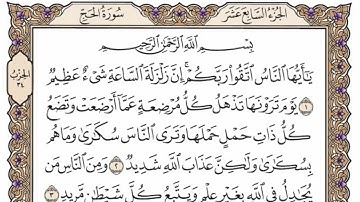 الجزء السابع عشر
سورة الحج
بِسْمِ اللَّهِ الرَّحْمَٰنِ الرَّحِيمِ
يَا أَيُّهَا النَّاسُ اتَّقُوا رَبَّكُمْ ۚ إِنَّ زَلْزَلَةَ السَّاعَةِ شَيْءٌ عَظِيمٌ
١ يَوْمَ تَرَوْنَهَا تَذْهَلُ كُلُّ مُرْضِعَةٍ عَمَّا أَرْضَعَتْ وَتَضَعُ
كُلُّ ذَاتِ حَمْلٍ حَمْلَهَا وَتَرَى النَّاسَ سُكَارَىٰ وَمَا هُم
بِسُكَارَىٰ وَلَٰكِنَّ عَذَابَ اللَّهِ شَدِيدٌ ٢ وَمِنَ النَّاسِ مَن
يُجَادِلُ فِي اللَّهِ بِغَيْرِ عِلْمٍ وَيَتَّبِعُ كُلَّ شَيْطَانٍ مَّرِيدٍ ٣
الحزب
٣٤